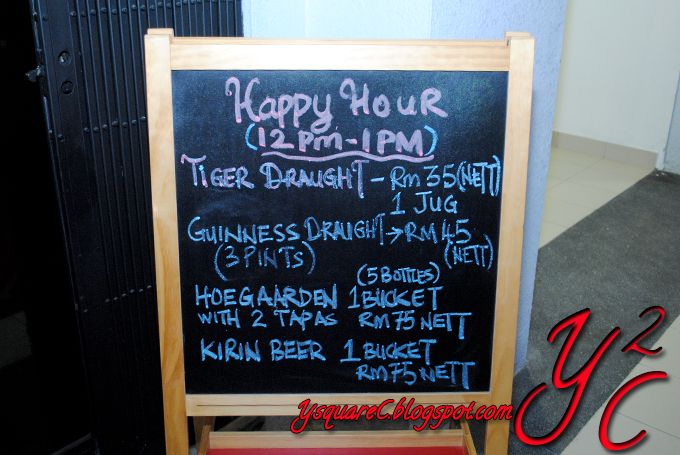 Happy Hour
(12pm-1PM)
TIGER DRAUGHT - Rm 35 (NETT)
1 JUG
GUINNESS DRAUGHT → RM 45
(3 PINTS) (NETT)
(5 BOTTLES)
HOEGAARDEN 1 BUCKET
WITH 2 TAPAS RM 75 NETT
KIRIN BEER 1 BUCKET
RM 75 NETT
YsquareC.blogspot.com
Y2C